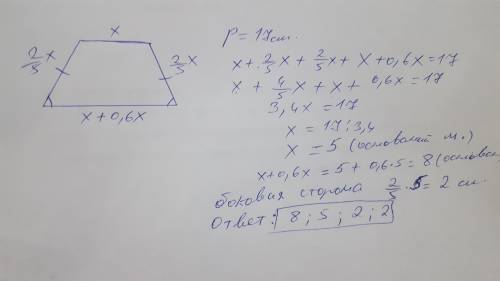 x
2/5 x
2/5 x
x + 0,6x
P = 17 см.
x + 2/5 x + 2/5 x + x + 0,6x = 17
x + 4/5 x + x + 0,6x = 17
3,4x = 17
x = 17 : 3,4
x = 5 (оснований м.)
x + 0,6x = 5 + 0,6 · 5 = 8 (основа
боковая сторона 2/5 · 5 = 2 см.
Ответ: 8 ; 5 ; 2 ; 2